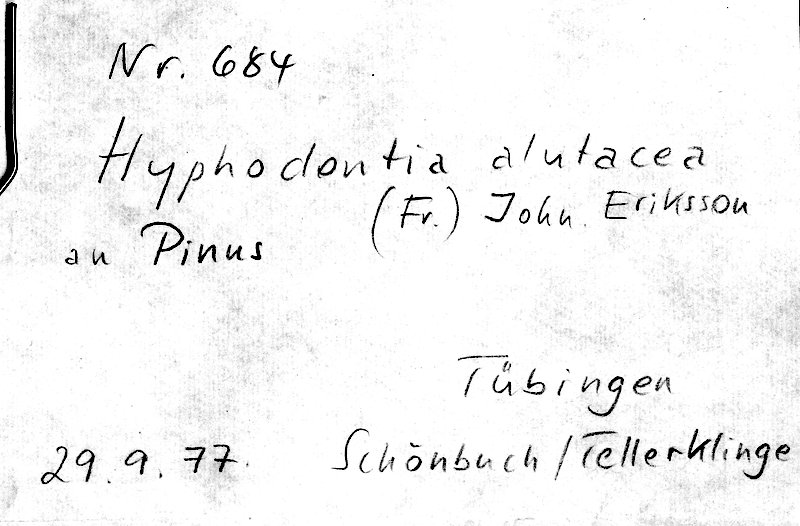 Nr. 684
Hyphodontia alutacea
(Fr.) John. Eriksson
an Pinus
Tübingen
29.9.77. Schönbuch / Tellerklinge